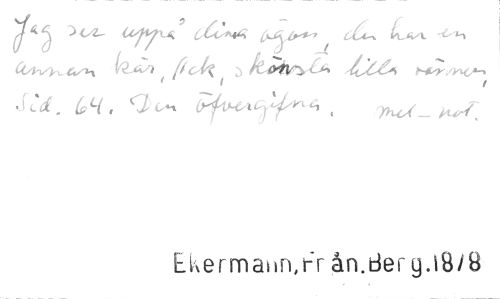 Jag ser uppå dina ögon, du har en
annan kär, Ack, skönsta lilla vännen,
Sid. 64. Den öfvergifna. mel-not.
Ekermann, Från Berg. 1878